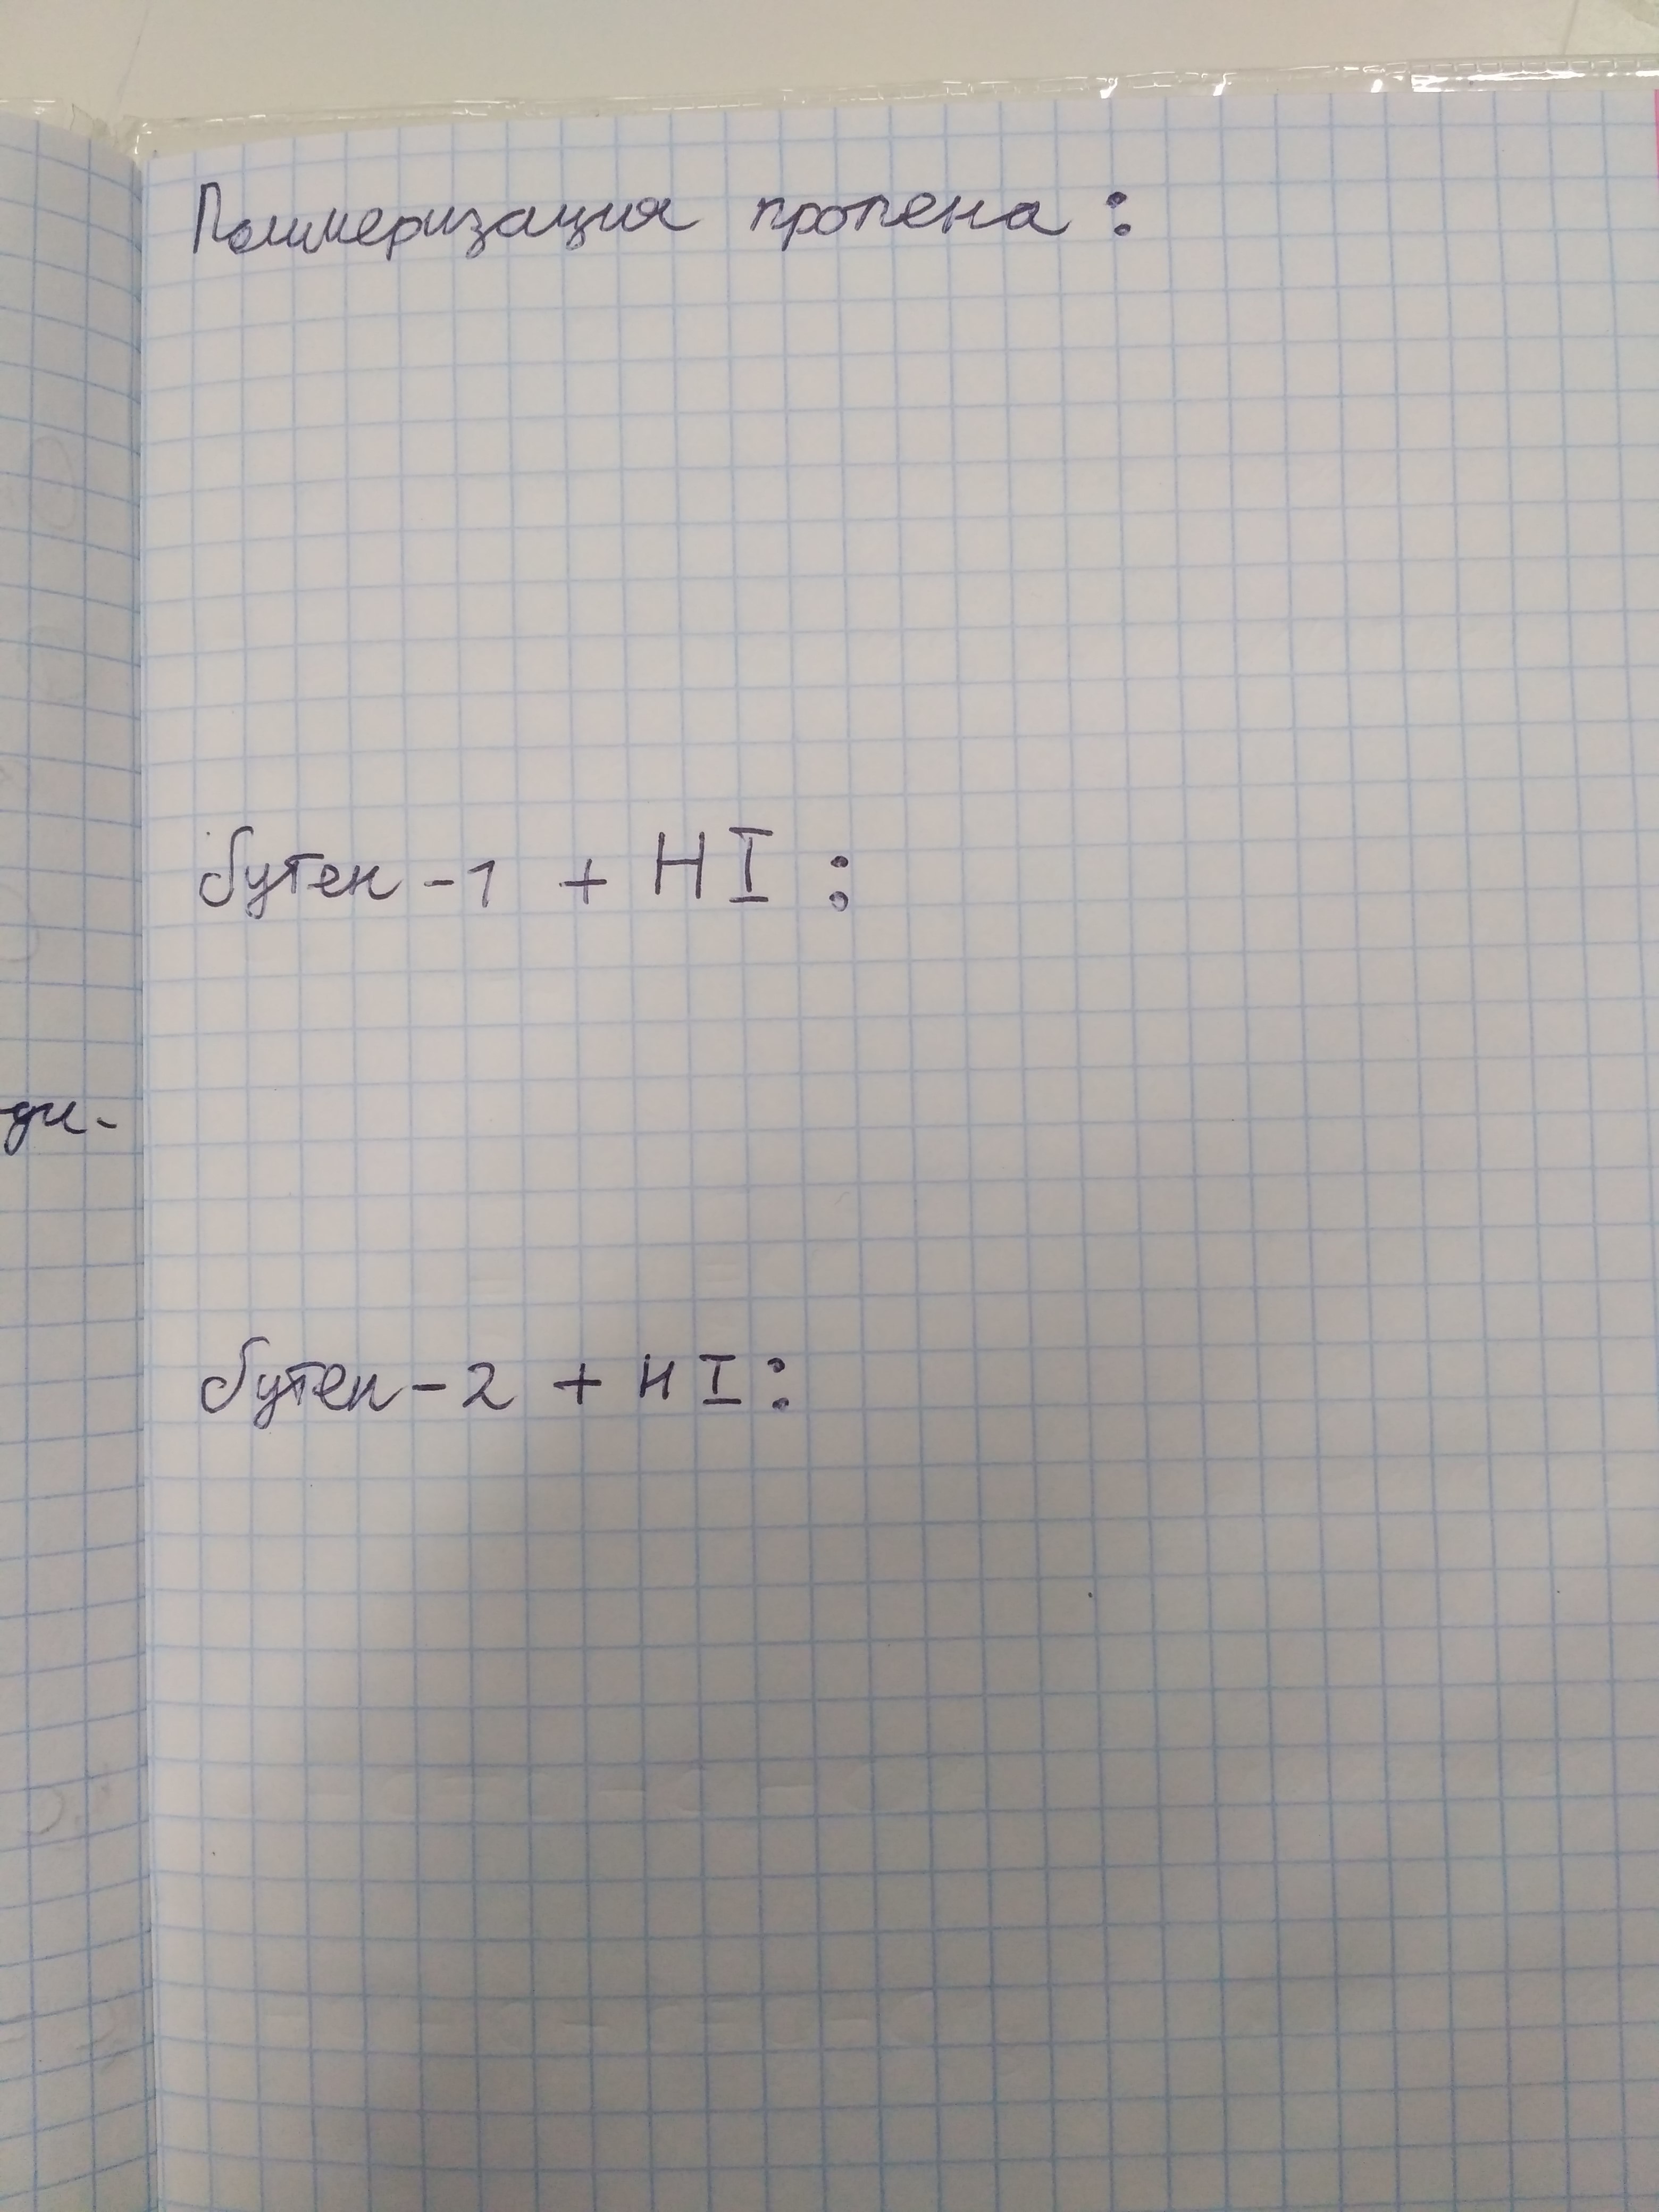 Полимеризация пропена:
бутен-1 + HI:
ди-
бутен-2 + HI: